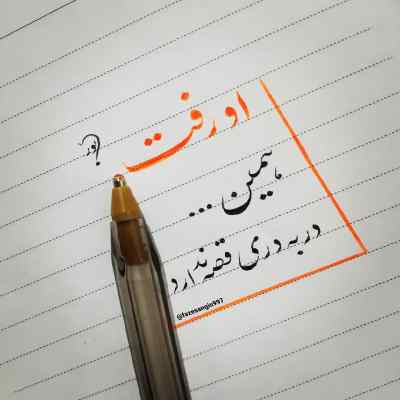 او رفت
همین ...
در به دری قصه ندارد
@fazesangin997